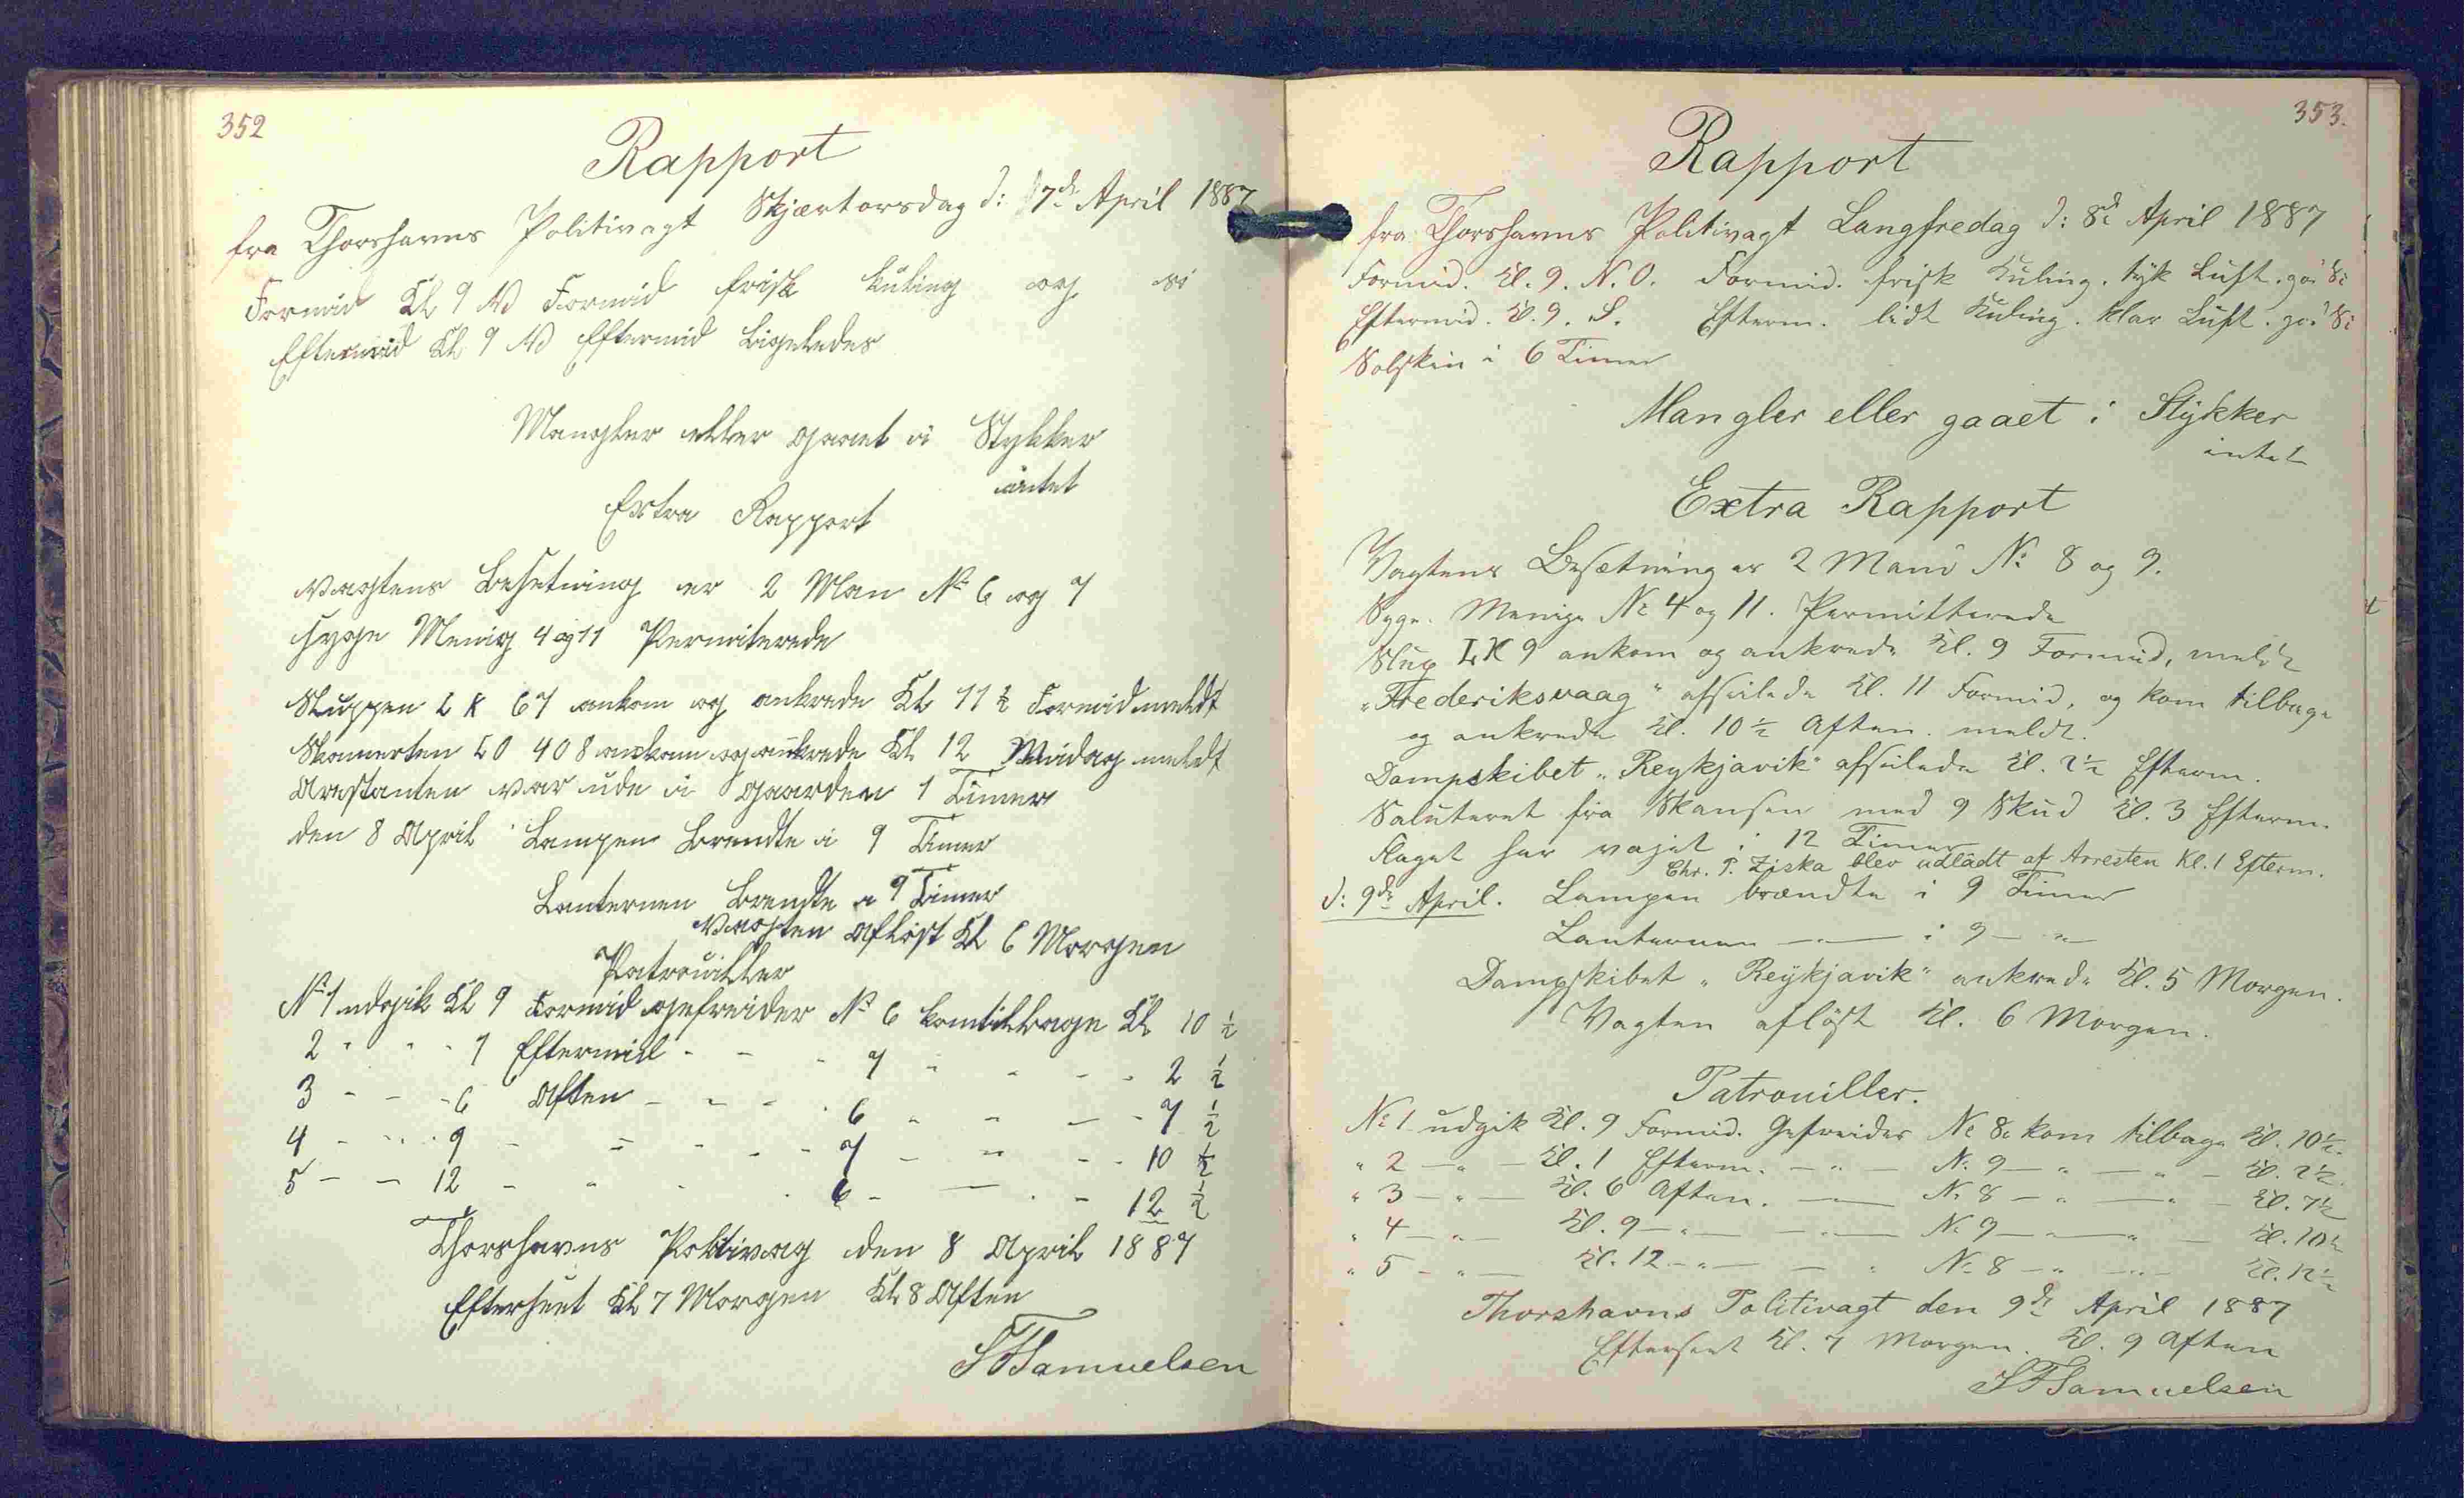 352
Rapport
fra Thorshavns Politivagt Skjærtorsdag d: 7de April 1887
Formid Kl 9 NO Formid frisk kuling og
Eftermid Kl 9 NO Eftermid ligeledes
Mangler eller gaaet i Stykker
intet
Extra Rapport
Vagtens Besetning er 2 Man No 6 og 7
syge Menig 4 og 11 Permiterede
Sluppen LK 67 ankom og ankrede Kl 11½ Formid meldt
Skonnerten LO 408 ankom og ankrede Kl 12 Midag meldt
Arestanten var ude i gaarden 1 Timer
den 8 April Lampen Brendte i 9 Timer
Lanternen Brendte i 9 Timer
Vagten Afløst Kl 6 Morgen
Patrouiller
No 1 udgik Kl 9 Formid gefreider No 6 kom tilbage Kl 10 ½
2 " " - 1 Eftermid - - - 7 - - - - 2 ½
3 - - - 6 Aften - - - - 6 - - - - 7 ½
4 - - - 9 - - - - - 7 - - - - 10 ½
5 - - 12 - - - - 6 - - - - 12 ½
Thorshavns Politivag den 8 April 1887
Efterseet Kl 7 Morgen Kl 8 Aften
SFSamuelsen
353.
Rapport
fra Thorshavns Politivagt Langfredag d: 8de April 1887
Formid. Kl. 9. N.O. Formid. frisk Kuling. tyk Luft. go
Eftermid. Kl. 9. S. Efterm. lidt Kuling. klar Luft. go
Solskin i 6 Timer
Mangler eller gaaet i Stykker
intet
Extra Rapport
Vagtens Besætning er 2 Mand No 8 og 9.
Syge. Menige No 4 og 11. Permitterede
Slup LK 9 ankom og ankrede Kl. 9 Formid, meldt
"Frederiksvaag" afseilede Kl. 11 Formid, og kom tilbage
og ankrede Kl. 10½ Aften. meldt.
Dampskibet "Reykjavik" afseilede Kl. 2½ Efterm.
Saluteret fra Skansen med 9 Skud Kl. 3 Efterm.
Flaget har vajet i 12 Timer
Chr. P. Ziska blev udladt af Arresten Kl. 1 Efterm.
d: 9de April. Lampen brændte i 9 Timer
Lanternen — " — i 9 — " —
Dampskibet "Reykjavik" ankrede Kl. 5 Morgen.
Vagten afløst Kl. 6 Morgen.
Patrouiller.
No 1 udgik Kl. 9 Formid. Gefreider No 8. kom tilbage Kl. 10½.
" 2 — " — Kl. 1 Efterm. — " — No 9 — " — " — Kl. 2½.
" 3 — " — Kl. 6 Aften. — " — No 8 — " — " — Kl. 7½
" 4 — " — Kl. 9 — " — — " — No 9 — " — " — Kl. 10½
" 5 — " — Kl. 12 — " — — " No 8 — " — " — Kl. 12½
Thorshavns Politivagt den 9de April 1887
Efterseet Kl. 7 Morgen. Kl. 9 Aften
SFSamuelsen